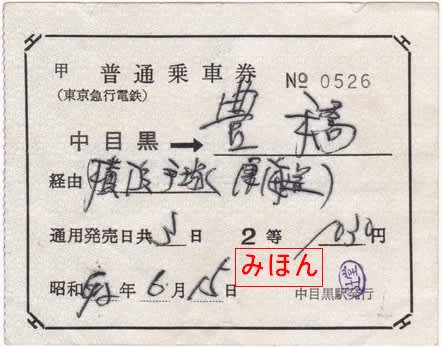 甲 普通乗車券 № 0526
(東京急行電鉄)
中目黒 → 豊橋
経由
通用発売日共 日 2等 1030円
昭和 年 6月15日
みほん
中目黒駅発行